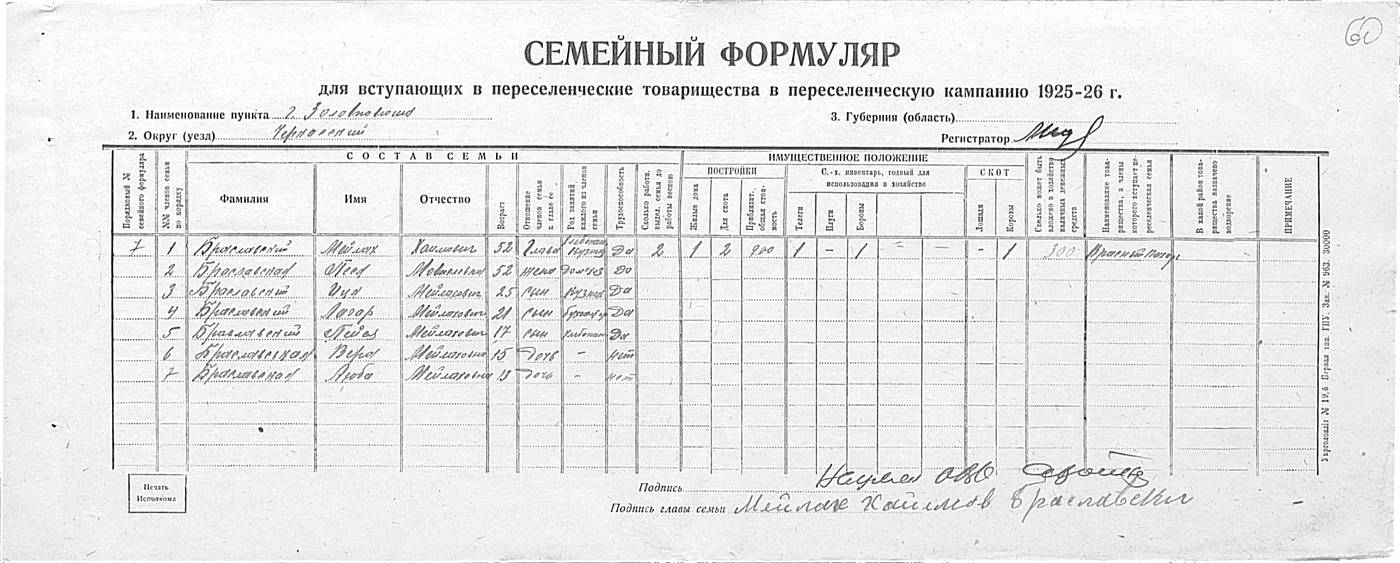 60
СЕМЕЙНЫЙ ФОРМУЛЯР
для вступающих в переселенческие товарищества в переселенческую кампанию 1925-26 г.
1. Наименование пункта г. Золотоноша 3. Губерния (область)
2. Округ (уезд) Черкасский Регистратор
СОСТАВ СЕМЬИ ИМУЩЕСТВЕННОЕ ПОЛОЖЕНИЕ
ПОСТРОЙКИ С.-х. инвентарь, годный для использования в хозяйстве СКОТ
Порядковый № семейного формуляра №№ членов семьи по порядку Фамилия Имя Отчество Возраст Отношение членов семьи к главе ее Род занятий каждого из членов семьи Трудоспособность Сколько работн. выдел. семья до работы весною Жилые дома Для скота Приблизит. общая стоимость Телеги Плуги Бороны Лошади Коровы Сколько может быть вложено в хозяйство наличных денежных средств Наименование товарищества, в члены которого вступает переселенческая семья В какой район товарищества назначено водворение ПРИМЕЧАНИЕ
7 1 Браславский Мейлах Хаимович 52 Глава Кузнец Да 2 1 2 900 1 – 1 – – – 1 300 Красный
2 Браславская Песя 52 жена Домхоз До
3 Браславский Ица Мейлахович 25 сын Кузнец Да
4 Браславский Лазар Мейлахович 21 сын Да
5 Браславский Пейся Мейлахович 17 сын Хлебопаш Да
6 Браславская Вера Мейлаховна 15 Дочь – нет
7 Браславская Люба Мейлаховна 13 Дочь – нет
Печать Исполкома
Подпись
Подпись главы семьи Мейлах Хаимов Браславский
Укрголовліт № 19,6 Перша тип. ГПУ. Зак. № 963. 30000